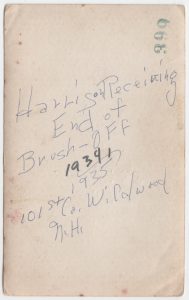 668
Harrison Receiving
End of
Brush-off
19391
1935
101st Co. Wildwood
N.H.